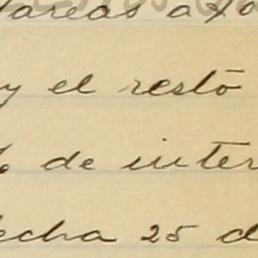 tareas a
y el restó
% de inter
fecha 25 d